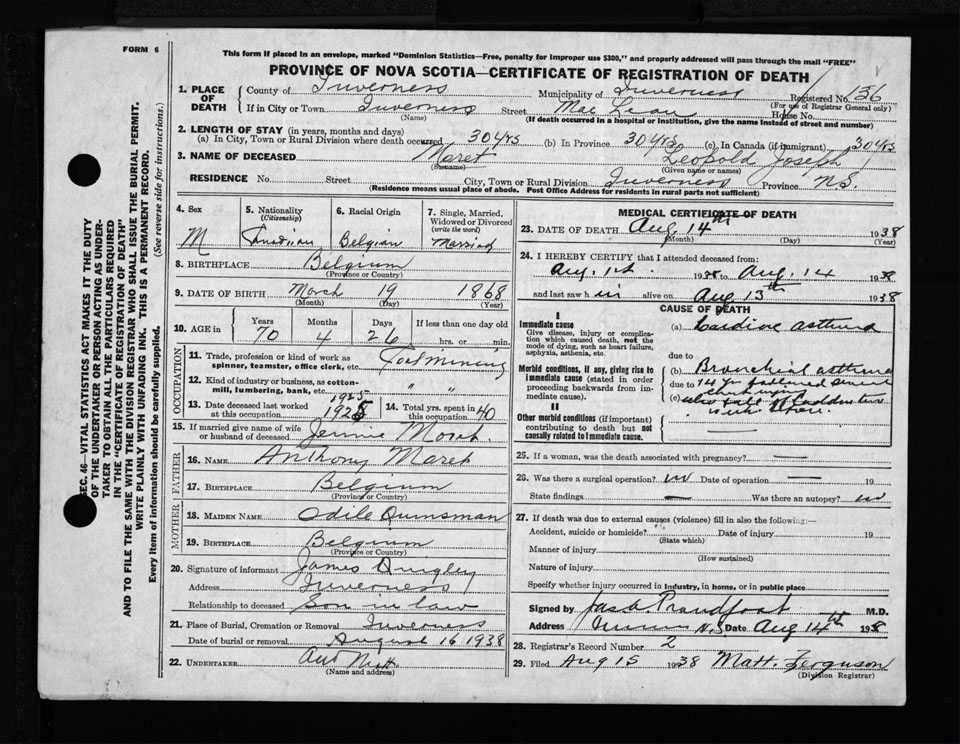 FORM 6
This form if placed in an envelope, marked "Dominion Statistics—Free, penalty for improper use $300," and properly addressed will pass through the mail "FREE"
PROVINCE OF NOVA SCOTIA—CERTIFICATE OF REGISTRATION OF DEATH
1. PLACE OF DEATH
County of Inverness Municipality of Inverness Registered No. 136
(For use of Registrar General only)
If in City or Town Inverness Street Mac Lean House No.
(Name) (If death occurred in a hospital or institution, give the name instead of street and number)
2. LENGTH OF STAY (in years, months and days)
(a) In City, Town or Rural Division where death occurred 30 yrs (b) In Province 30 yrs (c) In Canada (if immigrant) 30 yrs
3. NAME OF DECEASED Maret Leopold Joseph
(Surname) (Given name or names)
RESIDENCE No. Street City, Town or Rural Division Inverness Province N.S.
(Residence means usual place of abode. Post Office Address for residents in rural parts not sufficient)
SEC. 46—VITAL STATISTICS ACT MAKES IT THE DUTY
OF THE UNDERTAKER OR PERSON ACTING AS UNDER-
TAKER TO OBTAIN ALL THE PARTICULARS REQUIRED
IN THE "CERTIFICATE OF REGISTRATION OF DEATH"
AND TO FILE THE SAME WITH THE DIVISION REGISTRAR WHO SHALL ISSUE THE BURIAL PERMIT.
WRITE PLAINLY WITH UNFADING INK. THIS IS A PERMANENT RECORD.
Every item of information should be carefully supplied. (See reverse side for instructions.)
4. Sex
M
5. Nationality
(Citizenship)
6. Racial Origin
Belgian
7. Single, Married, Widowed or Divorced
(write the word)
Married
8. BIRTHPLACE Belgium
(Province or Country)
9. DATE OF BIRTH March 19 1868
(Month) (Day) (Year)
10. AGE in Years Months Days If less than one day old
70 4 26 hrs. or min.
OCCUPATION
11. Trade, profession or kind of work as spinner, teamster, office clerk, etc. Coal Mining
12. Kind of industry or business, as cotton-mill, lumbering, bank, etc. " "
13. Date deceased last worked at this occupation 1925 1925
14. Total yrs. spent in this occupation 40
15. If married give name of wife or husband of deceased Jennie
FATHER
16. NAME Anthony Maret
17. BIRTHPLACE Belgium
(Province or Country)
MOTHER
18. MAIDEN NAME Odile
19. BIRTHPLACE Belgium
(Province or Country)
20. Signature of informant James Quigley
Address Inverness
Relationship to deceased Son in law
21. Place of Burial, Cremation or Removal Inverness
Date of burial or removal August 16 1938
22. UNDERTAKER
(Name and address)
MEDICAL CERTIFICATE OF DEATH
23. DATE OF DEATH Aug. 14th 1938
(Month) (Day) (Year)
24. I HEREBY CERTIFY that I attended deceased from:
Aug. 1st. 1938 to Aug. 14 1938
and last saw h im alive on Aug 13th 1938
CAUSE OF DEATH
I
Immediate cause
Give disease, injury or complication which caused death, not the mode of dying, such as heart failure, asphyxia, asthenia, etc.
(a) Cardiac asthma
due to
Morbid conditions, if any, giving rise to immediate cause (stated in order proceeding backwards from immediate cause).
(b) Bronchial asthma
due to 14 yr
(c)
II
Other morbid conditions (if important) contributing to death but not causally related to immediate cause.
25. If a woman, was the death associated with pregnancy? —
26. Was there a surgical operation? no Date of operation — 19
State findings — Was there an autopsy? no
27. If death was due to external causes (violence) fill in also the following:—
Accident, suicide or homicide? Date of injury 19
(State which)
Manner of injury
(How sustained)
Nature of injury
Specify whether injury occurred in industry, in home, or in public place
Signed by Jas. A. Proudfoot M.D.
Address N.S. Date Aug 14th 1938
28. Registrar's Record Number 2
29. Filed Aug 15 1938 Matt. Ferguson
(Division Registrar)